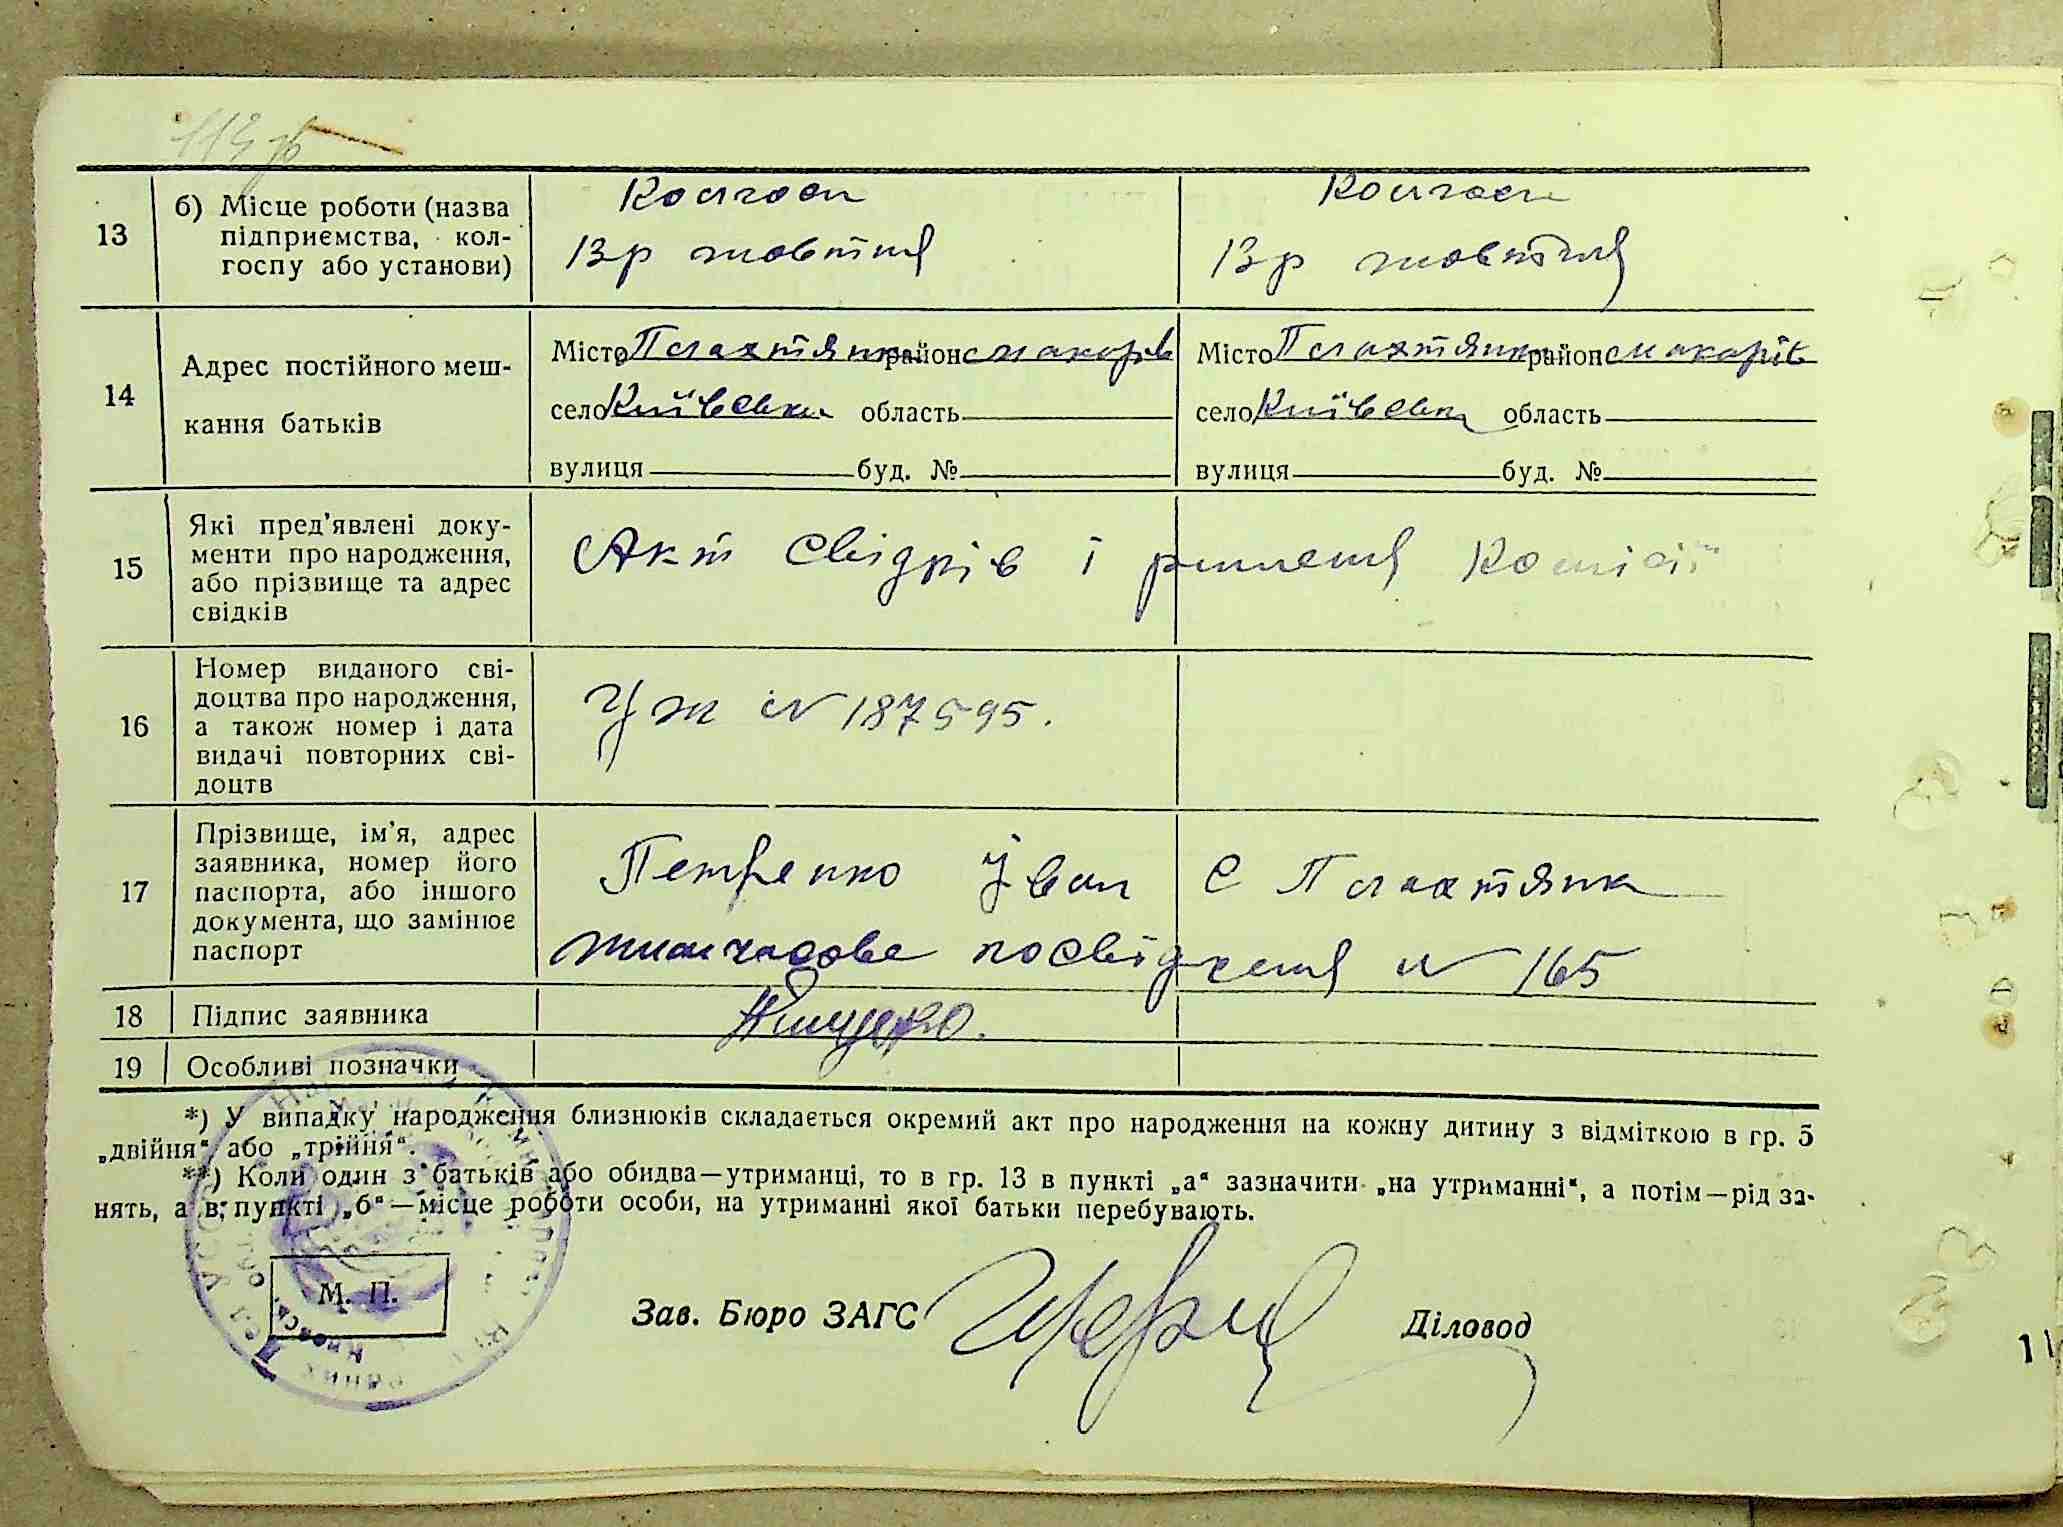 113 зв
13
б) Місце роботи (назва
підприємства, кол-
госпу або установи)
Колгосп
13 р жовтня
Колгосп
13 р жовтня
14
Адрес постійного меш-
кання батьків
Місто Плахтянка район Макарів
село Київська область
вулиця буд. №
Місто Плахтянка район Макарів
село Київська область
вулиця буд. №
15
Які пред'явлені доку-
менти про народження,
або прізвище та адрес
свідків
Акт свідків і рішення Комісії
16
Номер виданого сві-
доцтва про народження,
а також номер і дата
видачі повторних сві-
доцтв
УЖ № 187595.
17
Прізвище, ім'я, адрес
заявника, номер його
паспорта, або іншого
документа, що замінює
паспорт
Петренко Іван с Плахтянка
тимчасове посвідченя № 165
18 Підпис заявника
19 Особливі позначки
*) У випадку народження близнюків складається окремий акт про народження на кожну дитину з відміткою в гр. 5
„двійня“ або „трійня“.
**) Коли один з батьків або обидва—утриманці, то в гр. 13 в пункті „а“ зазначити „на утриманні“, а потім—рід за-
нять, а в пункті „б“—місце роботи особи, на утриманні якої батьки перебувають.
М. П.
Зав. Бюро ЗАГС
Діловод